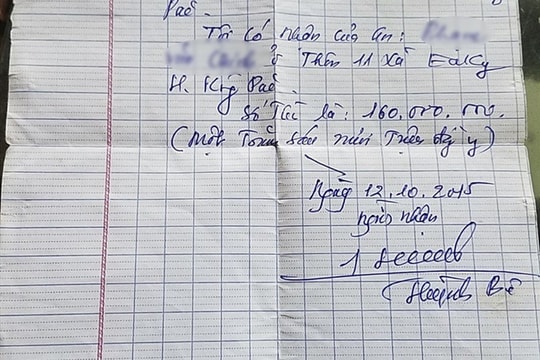 Pắc.
Tôi có nhận của an:
ở Thôn 11 Xã EaKly
H. Krông Pắc.
Số Tiền là: 160.000.000.
(Một Trăm sáu mươi Triệu
Ngày 12.10.2015
người nhận
Huỳnh Bê